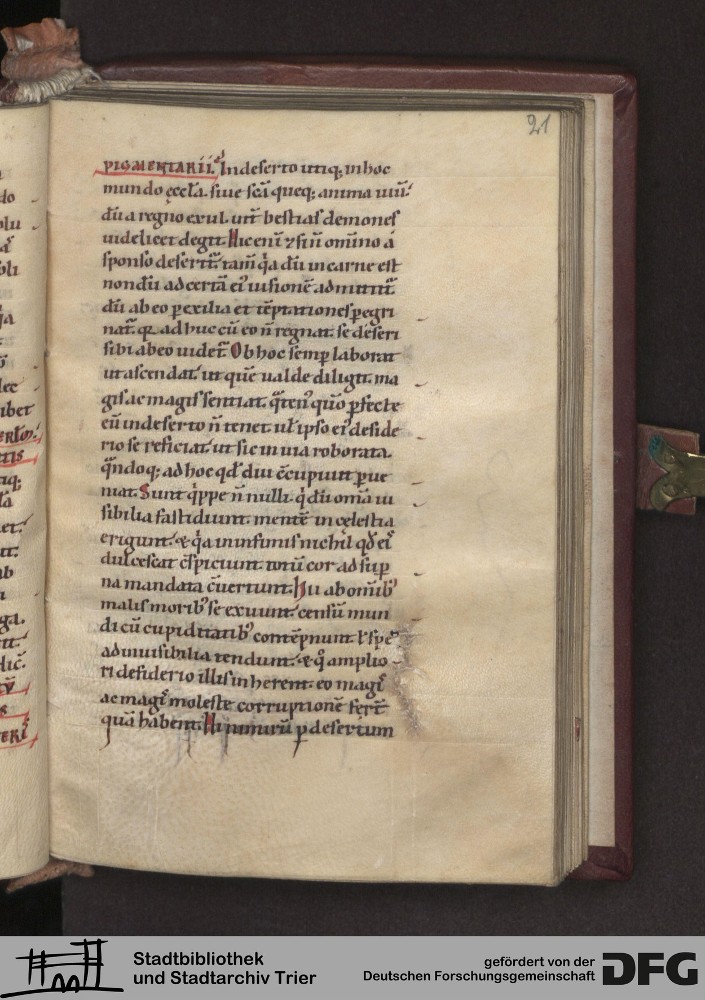 21
PIGMENTARII. In deserto utiq; in hoc
mundo ęccl̄a. siue sc̄a queq; anima uiu̅.
du̅ a regno exul. urit bestias demones
uidelicet degit. Hic eni̅ ⁊ si n̅ omnino a
sponso deserit̅. tam̅ q̇a du̅ in carne est
nondu̅ ad certa̅ ei᾽ uisione̅ admittit̅.
du̅ ab eo ꝑ exilia et te̅ptationes ꝑegri
nat̅. q̅ adhuc cu̅ eo n̅ regnat. se deseri
sibi ab eo uidet̅. Ob hoc semꝑ laborat
ut ascendat. ut que̅ ualde diligit. ma
gis ac magis sentiat. q̅ten᾽ quo ꝑfecte
eu̅ in deserto n̅ tenet. ul̅ ipso ei᾽ deside
rio se reficiat. ut sic in uia roborata.
q̅ndoq; ad hoc qd̅ diu c̅cupiuit ꝑue
niat. Sunt q̇ppe n̅nulli. q̇ du̅ om̅a ui
sibilia fastidiunt. mente̅ in cęlestia
erigunt. & q̇a in infimis nichil qd̅ ei᾽
dulcescat c̅spiciunt. totu̅ cor ad suꝑ
na mandata c̅uertunt. Hii ab om̅ib᾽
malis morib᾽ se exuunt. censu̅ mun
di cu̅ cupiditatib᾽ conte̅pnunt. & spe
ad inuisibilia tendunt. & q̊ amplio
ri desiderio illis inherent. eo magi᾽
ac magi᾽ moleste corruptione̅ fert̅
qua̅ habent. Hi nimiru̅ ꝑ desertum
Stadtbibliothek
und Stadtarchiv Trier
gefördert von der
Deutschen Forschungsgemeinschaft
DFG